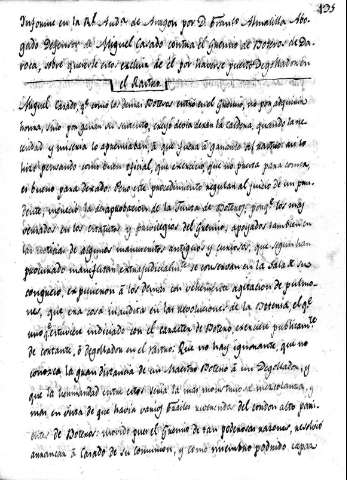 495
Informe en la Rl. Auda. de Aragon por D. Franco Almolilla Abo-
gado Defensor de Miguel Casado contra el Gremio de Boteros de Da-
roca, sobre querer este excluirle de él por haverse puesto Degollador en
el Rastro.
Miguel Casado, qe. como los demas Boteros entró en el Gremio, no por adquirir
honra, sino por ganar su sustento, creyó devia dexar la cadena, quando la ne-
cesidad y miseria lo aproximaban, a que fuera a ganarlo al Rastro: en lo
hizo pensando como buen oficial, que exercicio, que no presta para comer,
es bueno para dexado. Pero este procedimiento regular al juicio de un pru-
dente, mereció la desaprobacion de la Junta de Boteros; porqe. los mas
versados en los estatutos y privilegios del Gremio, apoyados tambien en
las noticias de algunos manuscritos antiguos y curiosos, que segun han
procurado manifestar extrajudicialmte. se conservan en la Sala de su
congreso, expusieron á los demás con vehemente agitacion de pulmo-
nes, que era cosa inaudita en las revoluciones de la Boteria, el qe.
uno qe. estuviere iniciado con el caracter de Botero, exerciere publicamte.
de cortante, ó degollador en el Rastro: Que no hay ignorante, que no
conozca la gran distancia de un Maestro Botero á un Degollador; y
que la hermandad entre estos seria la mas monstruosa mezcolanza, y
mas en vista de que havia varios
de Boteros: movido pues el Gremio de tan poderosas razones, resolvió
arrancar á Casado de su comunion, y como miembro podrido